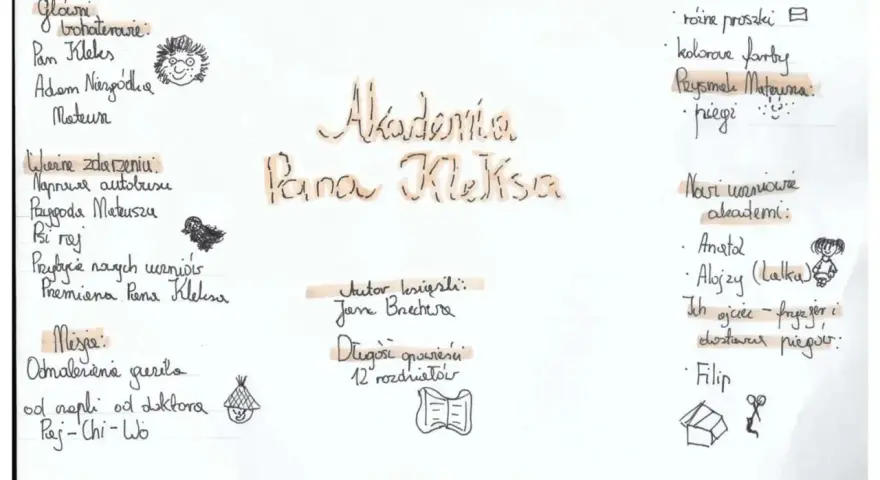 Główni
bohaterowie:
Pan Kleks
Adam Niezgódka
Mateusz
Ważne zdarzenia:
Naprawa autobusu
Przygoda Mateusza
Psi raj
Przybycie nowych uczniów
Przemiana Pana Kleksa
Misja:
Odnalezienie guzika
od czapki od doktora
Paj-Chi-Wo
Akademia
Pana Kleksa
Autor książki:
Jan Brzechwa
Długość opowieści
12 rozdziałów
· różne proszki
· kolorowe farby
Przysmak Mateusza:
· piegi
Nowi uczniowie
akademi:
· Anatol
· Alojzy (Lalka)
Ich ojciec – fryzjer i
dostawca piegów:
· Filip